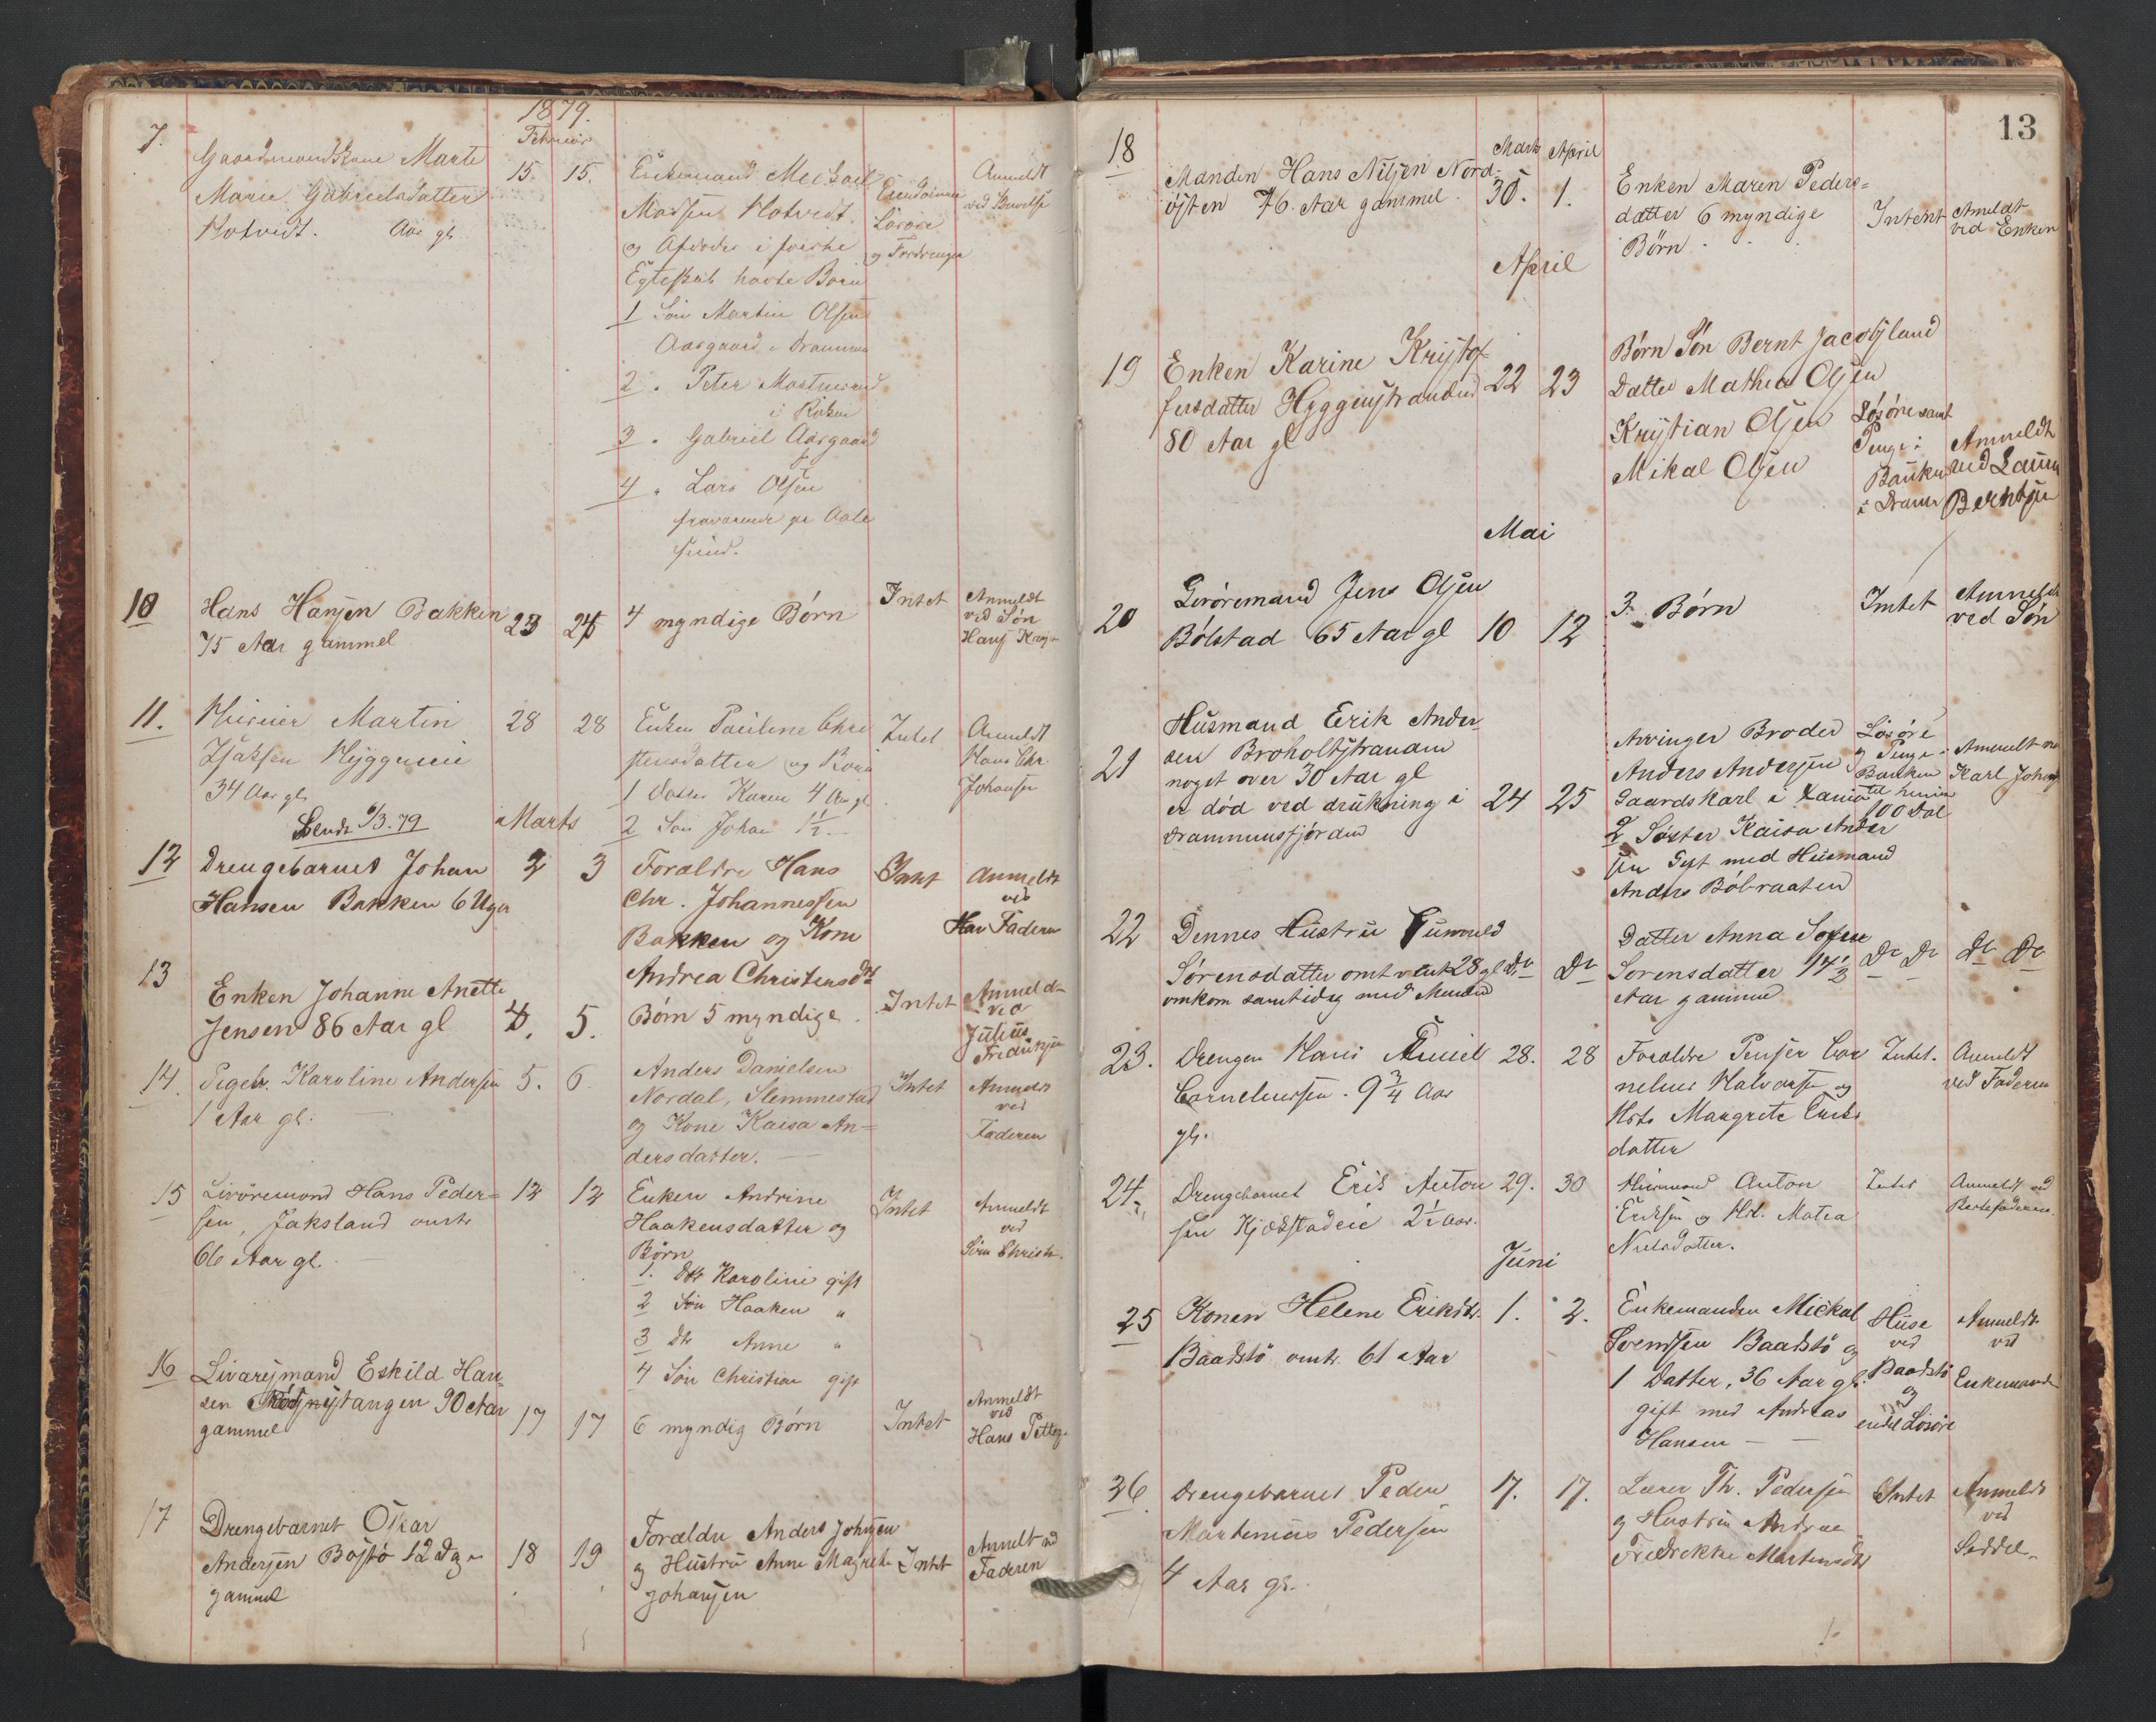 1879.
Februar
7.
Gaardmandskone Marte
Marie Gabrielsdatter
Hotvedt. Aar gl.
15. 15.
Enkemand
Madsen Hotvedt.
og Afdødes i første
Egteskab havte Børn
1 Søn Martin Olsen
Aasgaard, Drammen
2 " Peter
i Röken
3 " Gabriel Aasgaard
4 " Lars Olsen
fraværende pr Aale
sund.
Eiendomme
Lösöre
og Fordringer
Anmeldt
ved Skrivelse
10
Hans Hansen Bakken
75 Aar gammel
23 25
4 myndige Børn
Intet
Anmeldt
ved Søn
11.
Huseier Martin
Isaksen Hyggeneie
34 Aar gl.
28 28
Enken Pauline Chri
stensdatter og Børn
1 Datter Karen 4 Aar gl.
2 Søn Johan 1½
Intet
Anmeldt
Hans Chr.
Johansen
Sendt 6/3.79
Marts
12
Drengebarnet Johan
Hansen Bakken 6 Uger
2 3
Forældre Hans
Chr. Johannessen
Bakken og Kone
Andrea Christensdt
Intet
Anmeldt
ved
Faderen
13
Enken Johanne Anette
Jensen 86 Aar gl
4. 5.
Börn 5 myndige
Intet
Anmeldt
ved
Julius
Fredriksen
14.
Pigeb. Karoline Andersen
1 Aar gl.
5. 6.
Anders Danielsen
Nordal, Slemmestad
og Kone Kaisa An=
dersdatter.
Intet
Anmeldt
ved
Faderen
15
Livöremand Hans Peder=
sen, Jaksland omtr
66 Aar gl.
12 12
Enken Andrine
Haakensdatter og
Börn
1. Dtr Karoline gift
2 Sön Haaken "
3 Dtr Anne "
4 Sön Christian gift
Intet
Anmeldt
ved
16
Eskild Han
sen 90 Aar
gammel
17 17
6 myndig Børn
Intet
Anmeldt
ved
Hans
17
Drengebarnet Oskar
Andersen Bøstö 12 Dage
gammel
18 19
Forældre Anders Johnsen
og Hustru Anne Magrete
Johansen
Intet
Anmelt ved
Faderen
13
Marts April
18
Manden Hans Nilsen Nord-
østen 76. Aar gammel.
30. 1.
Enken Maren Peders=
datter 6 myndige
Børn
Intent
Anmeldt
ved Enken
April
19
Enken Karine Kristof
fersdatter Hyggenstranden
80 Aar gl
22 23
Børn Søn Bernt
Datter Mathea Olsen
Kristian Olsen
Mikal Olsen
Løsøre samt
Penge i
Banken
i Dramn
Anmeldt
ved
Berntsen
Mai
20
Livøremand Jens Olsen
Bølstad 65 Aar gl
10 12
3 Børn
Intet
Anmeldt
ved Søn
21
Husmand Erik Ander
sen Broholtstranden
noget over 30 Aar gl
er død ved drukning i
Drammensfjorden
24 25
Arvinger Broder
Anders Andersen
Gaardskarl i
2 Søster Kaisa Ander
sen Gift med Husmand
Anders Bøbraaten
Løsøre
og Penge i
Banken
100 Dal
Anmelt ved
Karl
22
Dennes Hustru Gunnild
Sørensdatter omt 28 gl
omkom samtidig med Manden
Do Do
Datter Anna Sofie
Sorensdatter 1½
Aar gammel
Do Do
Do Do
23.
Drengen Hans Emiel
Corneliussen. 9¾ Aar
gl.
28. 28
Forældre Cor
nelius Halvorsen og
Hst. Margrete Eriks
datter
Intet.
Anmeldt
ved Faderen
24.
Drengebarnet Erik Anton
sen Kjekstadeie 2½ Aar.
29. 30
Husmand Anton
Eriksen og Hst. Matea
Nielsdatter.
Intet
Anmeldt ved
Bestefaderen.
Juni
25
Konen Helene Eriksdtr.
Baadstö omtr. 61 Aar
1. 2.
Enkemanden Mickal
Svendsen Baadstö og
1 Datter, 36 Aar gl.
gift med Andreas
Hansen
Huse
ved
Baadstö
og
endel Lösöre
Anmeldt
ved
Enkemanden
26
Drengebarnet Peder
Martinius Pedersen
4 Aar gl.
17. 17.
Lærer Th. Pedersen
og Hustru Andrea
Fredrekke Martinsdtr
Intet
Anmeldt
ved
Seddel.